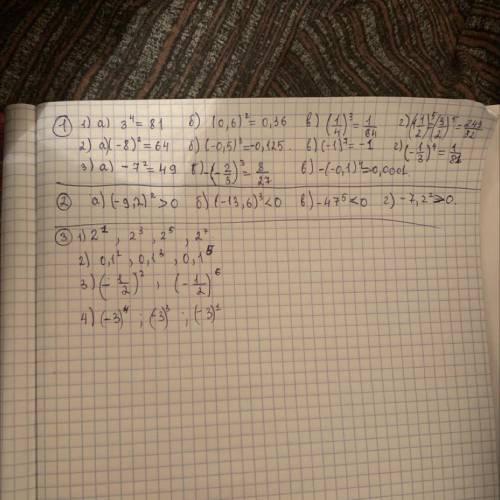 ① 1) а) 3⁴ = 81 б) (0,6)² = 0,36 в) (1/4)³ = 1/64 г) (1 1/2)⁵ = (3/2)⁵ = 243/32
2) а) (-8)² = 64 б) (-0,5)³ = -0,125 в) (-1)⁷ = -1 г) (-1/3)⁴ = 1/81
3) а) -7² = 49 б) -(-2/3)³ = 8/27 в) -(-0,1)⁴ = 0,0001
② а) (-9,2)² > 0 б) (-13,6)³ < 0 в) -47⁵ < 0 г) -7,2² > 0.
③ 1) 2¹ , 2³ , 2⁵ , 2⁷
2) 0,1² , 0,1³ , 0,1⁵
3) (-1/2)² ; (-1/2)⁶
4) (-3)⁴ ; (-3)³ ; (-3)¹